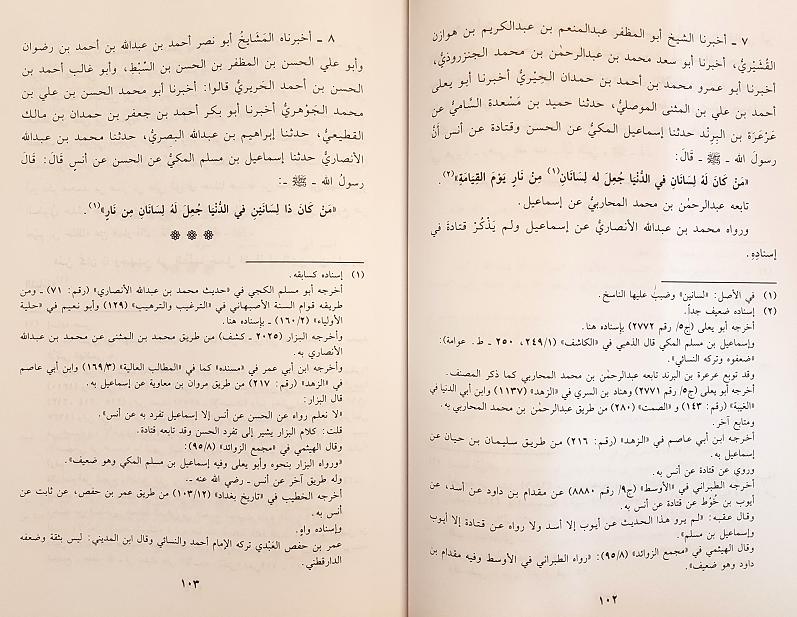 ٧ ـ أخبرنا الشيخ أبو المظفر عبدالمنعم بن عبدالكريم بن هوازن
القُشَيْرِيُّ، أخبرنا أبو سعد محمد بن عبدالرحمٰن بن محمد الجنزروذيُّ،
أخبرنا أبو عمرو محمد بن أحمد بن حمدان الحِيْرِيُّ أخبرنا أبو يعلى
أحمد بن علي بن المثنى الموصليُّ، حدثنا حميد بن مَسْعدة السَّاميُّ عن
عَرْعَرَة بن البِرِنْد حدثنا إسماعيل المكيُّ عن الحسن وقتادة عن أنس أنَّ
رسولَ الله ـ ﷺ ـ قَالَ:
«مَنْ كَانَ لَهُ لِسَانَانِ في الدُّنْيَا جُعِلَ له لِسَانَانِ(١) مِنْ نَارٍ يَوْمَ القِيَامَةِ»(٢).
تابعه عبدالرحمٰن بن محمد المحاربيُّ عن إسماعيل.
ورواه محمد بن عبدالله الأنصاريُّ عن إسماعيل ولم يَذْكُرْ قتادةَ في
إسنادِهِ.
(١) في الأصل: «لسانين» وضبب عليها الناسخ.
(٢) إسناده ضعيف جداً.
أخرجه أبو يعلى (ج٥/ رقم ٢٧٧٢) بإسناده هنا.
وإسماعيل بن مسلم المكي قال الذهبي في «الكاشف» (٢٤٩/١، ٢٥٠ ـ ط. عوامة):
«ضعفوه وتركه النسائي».
وقد توبع عرعرة بن البرند تابعه عبدالرحمٰن بن محمد المحاربي كما ذكر المصنف.
أخرجه أبو يعلى (ج٥/ رقم ٢٧٧١) وهناد بن السري في «الزهد» (١١٣٧) وابن أبي الدنيا في
«الغيبة» (رقم: ١٤٣) و «الصمت» (٢٨٠) من طريق عبدالرحمٰن بن محمد المحاربي به.
ومتابع آخر.
أخرجه ابن أبي عاصم في «الزهد» (رقم: ٢١٦) من طريق سليمان بن حيان عن
إسماعيل به.
وروي عن قتادة عن أنس به.
أخرجه الطبراني في «الأوسط» (ج٩/ رقم ٨٨٨٠) عن مقدام بن داود عن أسد، عن
أيوب بن خُوْط عن قتادة عن أنس به.
وقال عقبه: «لم يرو هذا الحديث عن أيوب إلا أسد ولا رواه عن قتادة إلا أيوب
وإسماعيل بن مسلم».
وقال الهيثمي في «مجمع الزوائد» (٩٥/٨): «رواه الطبراني في الأوسط وفيه مقدام بن
داود وهو ضعيف».
١٠٢
٨ ـ أخبرناه المَشَايخُ أبو نصر أحمد بن عبدالله بن أحمد بن رضوان
وأبو علي الحسن بن المظفر بن الحسن بن السِّبْط، وأبو غالب أحمد بن
الحسن بن أحمد الحَرِيريُّ قالوا: أخبرنا أبو محمد الحسن بن علي بن
محمد الجَوْهريُّ أخبرنا أبو بكر أحمد بن جعفر بن حمدان بن مالك
القطيعيُّ، حدثنا إبراهيم بن عبدالله البصريُّ، حدثنا محمد بن عبدالله
الأنصاريُّ حدثنا إسماعيل بن مسلم المكيُّ عن الحسن عن أنسٍ قَالَ: قَالَ
رسولُ الله ـ ﷺ ـ:
«مَنْ كَانَ ذَا لِسَانَيْنِ في الدُّنْيَا جُعِلَ لَهُ لِسَانَانِ مِن نَارٍ»(١).
(١) إسناده كسابقه.
أخرجه أبو مسلم الكجي في «حديث محمد بن عبدالله الأنصاري» (رقم: ٧١) ـ ومن
طريقه قوام السنة الأصبهاني في «الترغيب والترهيب» (١٢٩) وأبو نعيم في «حلية
الأولياء» (١٦٠/٢) ـ بإسناده هنا.
وأخرجه البزار (٢٠٢٥ ـ كشف) من طريق محمد بن المثنى عن محمد بن عبدالله
الأنصاري به.
وأخرجه ابن أبي عمر في «مسنده» كما في «المطالب العالية» (١٦٩/٣) وابن أبي عاصم
في «الزهد» (رقم: ٢١٧) من طريق مروان بن معاوية عن إسماعيل به.
قال البزار:
«لا نعلم رواه عن الحسن عن أنس إلا إسماعيل تفرد به عن أنس».
قلت: كلام البزار يشير إلى تفرد الحسن وقد تابعه قتادة.
وقال الهيثمي في «مجمع الزوائد» (٩٥/٨):
«ورواه البزار بنحوه وأبو يعلى وفيه إسماعيل بن مسلم المكي وهو ضعيف».
وله طريق آخر عن أنس ـ رضي الله عنه ـ.
أخرجه الخطيب في «تاريخ بغداد» (١٠٣/١٢) من طريق عمر بن حفص، عن ثابت عن
أنس به.
وإسناده واهٍ.
عمر بن حفص العَبْدي تركه الإمام أحمد والنسائي وقال ابن المديني: ليس بثقة وضعفه
الدارقطني.
١٠٣